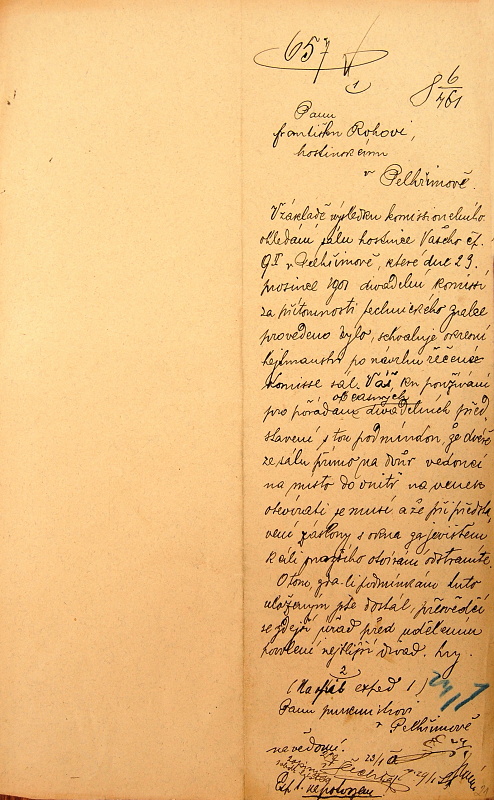 657
1
8 6/461
Panu
františku Rohovi,
hostinskému
v Pelhřimově.
V základě výsledku komissionelního
ohledání sálu hostince Vašeho čp.
9 II v Pelhřimově, které dne 29.
prosince 1901 divadelní komissí
za přítomnosti technického znalce
provedeno bylo, schvaluje okresní
hejtmanství po návrhu řečené
komisse sál Váš, ku používání
občasných
pro pořádání divadelních před
stavení s tou podmínkou, že dvéře
ze sálu přímo na dvůr vedoucí
na místo do vnitř na venek
otevírati se musí a že při předsta
vení záslony s okna za jevištěm
k áli snazšího otvírání odstraníte.
O tom, zda-li podmínkám tuto
uloženým jste dostál, přesvědčí
se zdejší úřad před udělením
povolení nejbližší divad. hry.
2
(Na exped 1)
24/1
Panu purkmistrovi
v Pelhřimově
na vědomí.
23/1